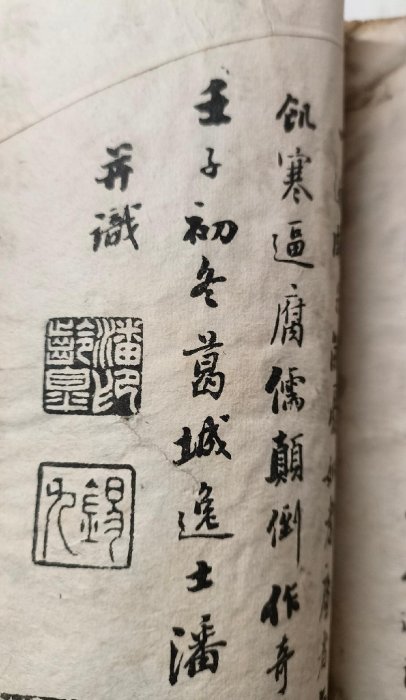 飢寒逼腐儒顛倒作奇
壬子初冬葛城逸士潘
并識
潘印齡皐
錫九